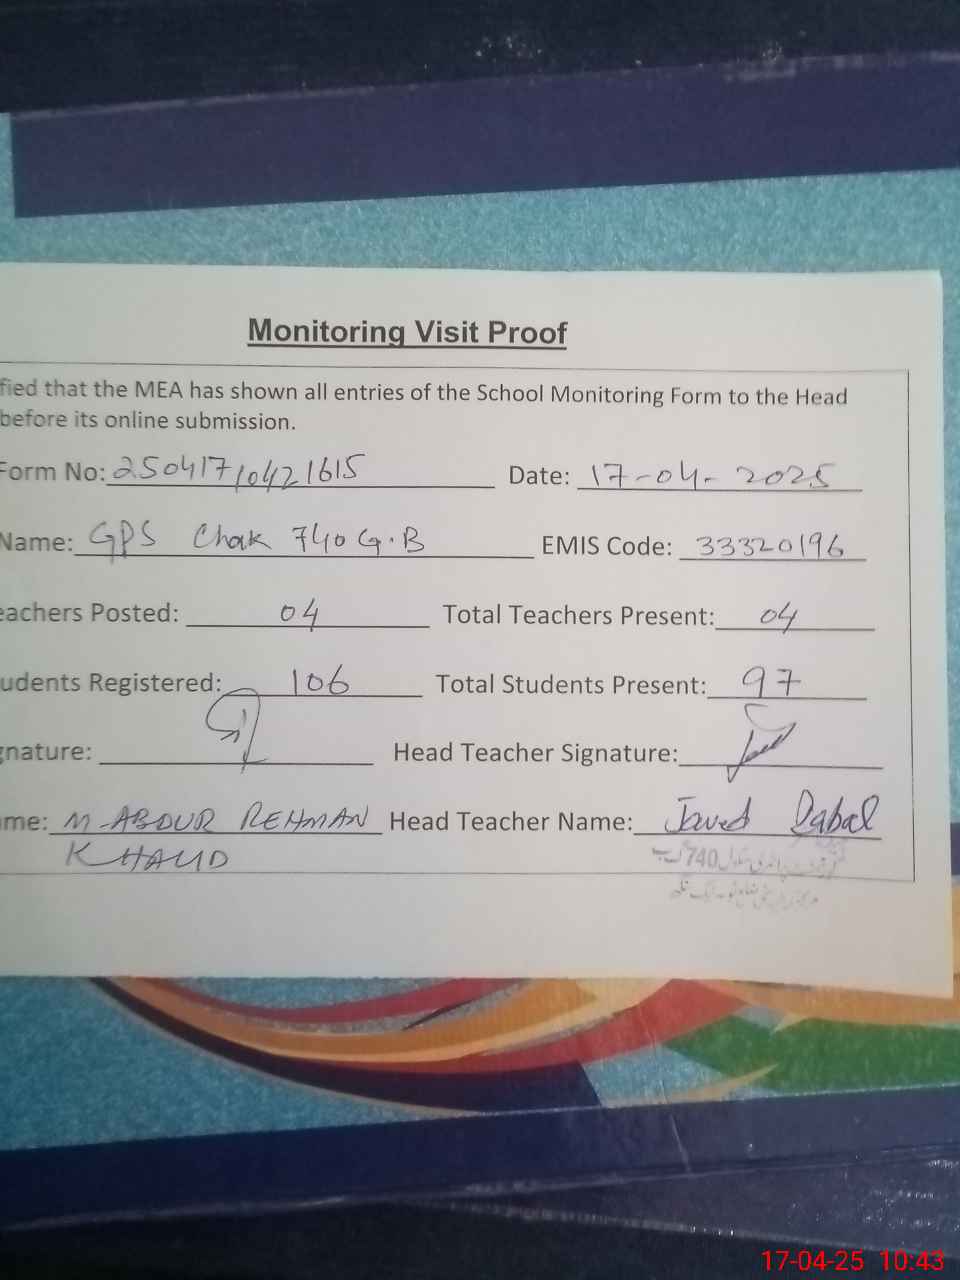 Monitoring Visit Proof
fied that the MEA has shown all entries of the School Monitoring Form to the Head
before its online submission.
Form No: 250417/10421615 Date: 17-04-2025
Name: GPS Chak 740 G.B EMIS Code: 33320196
eachers Posted: 04 Total Teachers Present: 04
udents Registered: 106 Total Students Present: 97
gnature: Head Teacher Signature:
me: M-ABDUR REHMAN Head Teacher Name: Javed Iqbal
KHALID
740
17-04-25 10:43